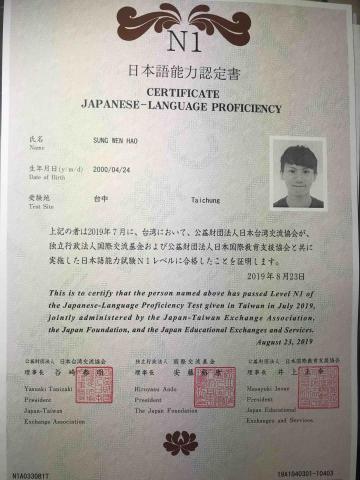 N1
日本語能力認定書
CERTIFICATE
JAPANESE-LANGUAGE PROFICIENCY
氏名
Name
SUNG WEN HAO
生年月日(y/m/d)
Date of Birth
2000/04/24
受験地
Test Site
台中 Taichung
上記の者は2019年7月に、台湾において、公益財団法人日本台湾交流協会が、
独立行政法人国際交流基金および公益財団法人日本国際教育支援協会と共に
実施した日本語能力試験N1レベルに合格したことを証明します。
2019年8月23日
This is to certify that the person named above has passed Level N1 of
the Japanese-Language Proficiency Test given in Taiwan in July 2019,
jointly administered by the Japan-Taiwan Exchange Association,
the Japan Foundation, and the Japan Educational Exchanges and Services.
August 23, 2019
公益財団法人 日本台湾交流協会
理事長 谷崎泰明
Yasuaki Tanizaki
President
Japan-Taiwan
Exchange Association
独立行政法人 国際交流基金
理事長 安藤裕康
Hiroyasu Ando
President
The Japan Foundation
公益財団法人 日本国際教育支援協会
理事長 井上正幸
Masayuki Inoue
President
Japan Educational
Exchanges and Services
N1A033081T
19A1040301-10403